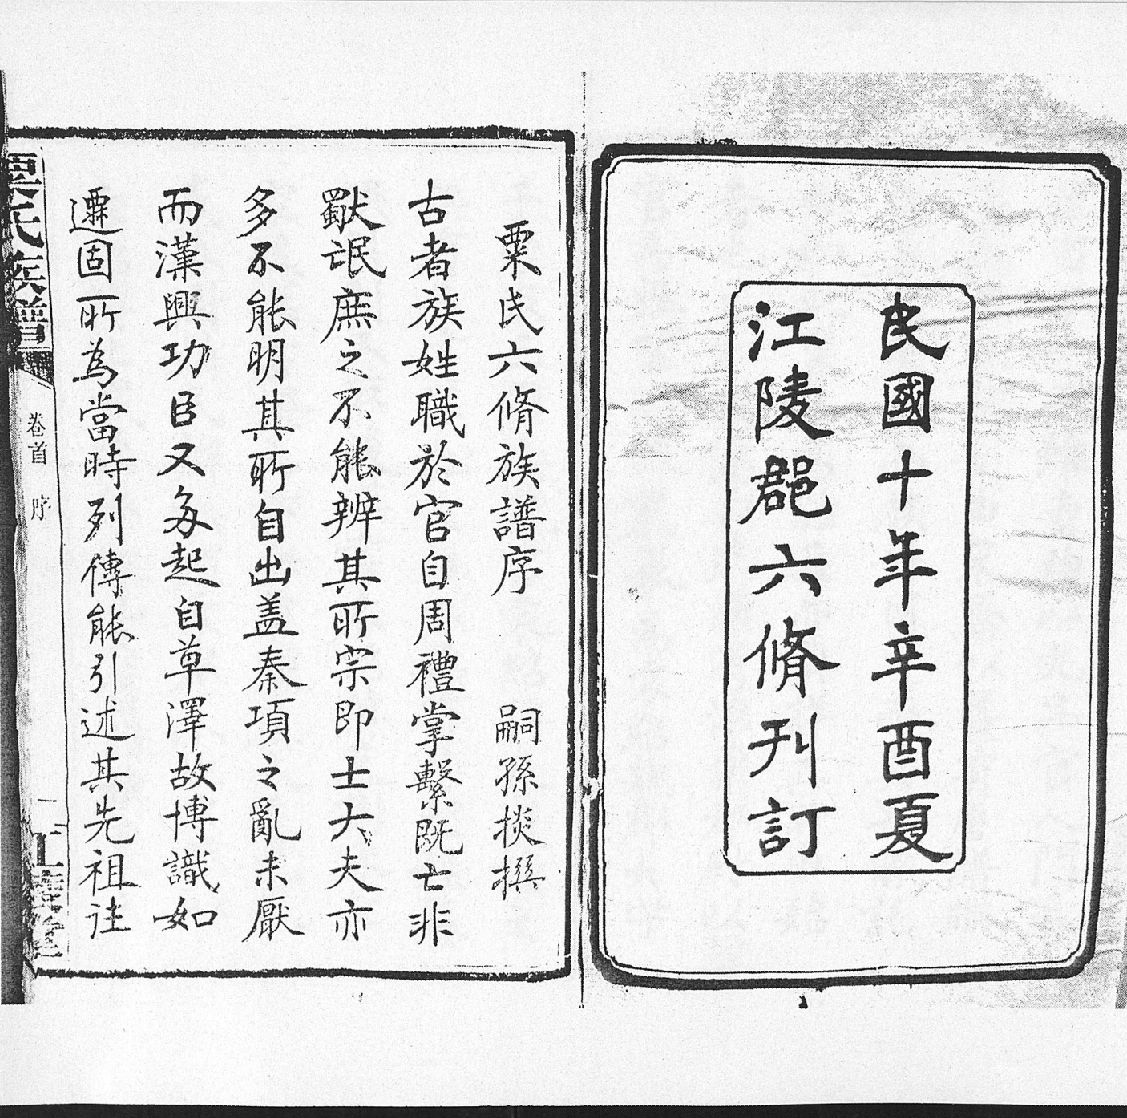 民國十年辛酉夏
江陵郡六脩刋訂
粟氏六脩族譜序　嗣孫掞撰
古者族姓職於官自周禮掌繫既亡非
獸氓庶之不能辨其所宗即士大夫亦
多不能明其所自出盖秦項之亂未厭
而漢興功臣又多起自草澤故博識如
遷固所為當時列傳能引述其先祖徃
粟氏族譜
卷首　序
一